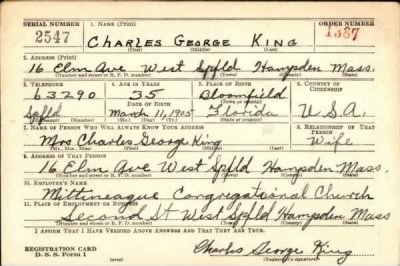 SERIAL NUMBER 1. NAME (Print) ORDER NUMBER
2547 CHARLES GEORGE KING 1387
(First) (Middle) (Last)
2. ADDRESS (Print)
16 Elm Ave West Spfld Hampden Mass.
(Number and street or R. F. D. number) (Town) (County) (State)
3. TELEPHONE 4. AGE IN YEARS 5. PLACE OF BIRTH 6. COUNTRY OF CITIZENSHIP
63290 35 Bloomfield
DATE OF BIRTH (Town or county)
Spfld March 11, 1905 Florida U.S.A.
(Exchange) (Number) (Mo.) (Day) (Yr.) (State or country)
7. NAME OF PERSON WHO WILL ALWAYS KNOW YOUR ADDRESS 8. RELATIONSHIP OF THAT PERSON
Mrs Charles George King Wife
(Mr., Mrs., Miss) (First) (Middle) (Last)
9. ADDRESS OF THAT PERSON
16 Elm Ave West Spfld Hampden Mass.
(Number and street or R. F. D. number) (Town) (County) (State)
10. EMPLOYER'S NAME
Mittineague Congregational Church
11. PLACE OF EMPLOYMENT OR BUSINESS
Second St West Spfld Hampden Mass
(Number and street or R. F. D. number) (Town) (County) (State)
I AFFIRM THAT I HAVE VERIFIED ABOVE ANSWERS AND THAT THEY ARE TRUE.
REGISTRATION CARD
D. S. S. Form 1 (over) Charles George King